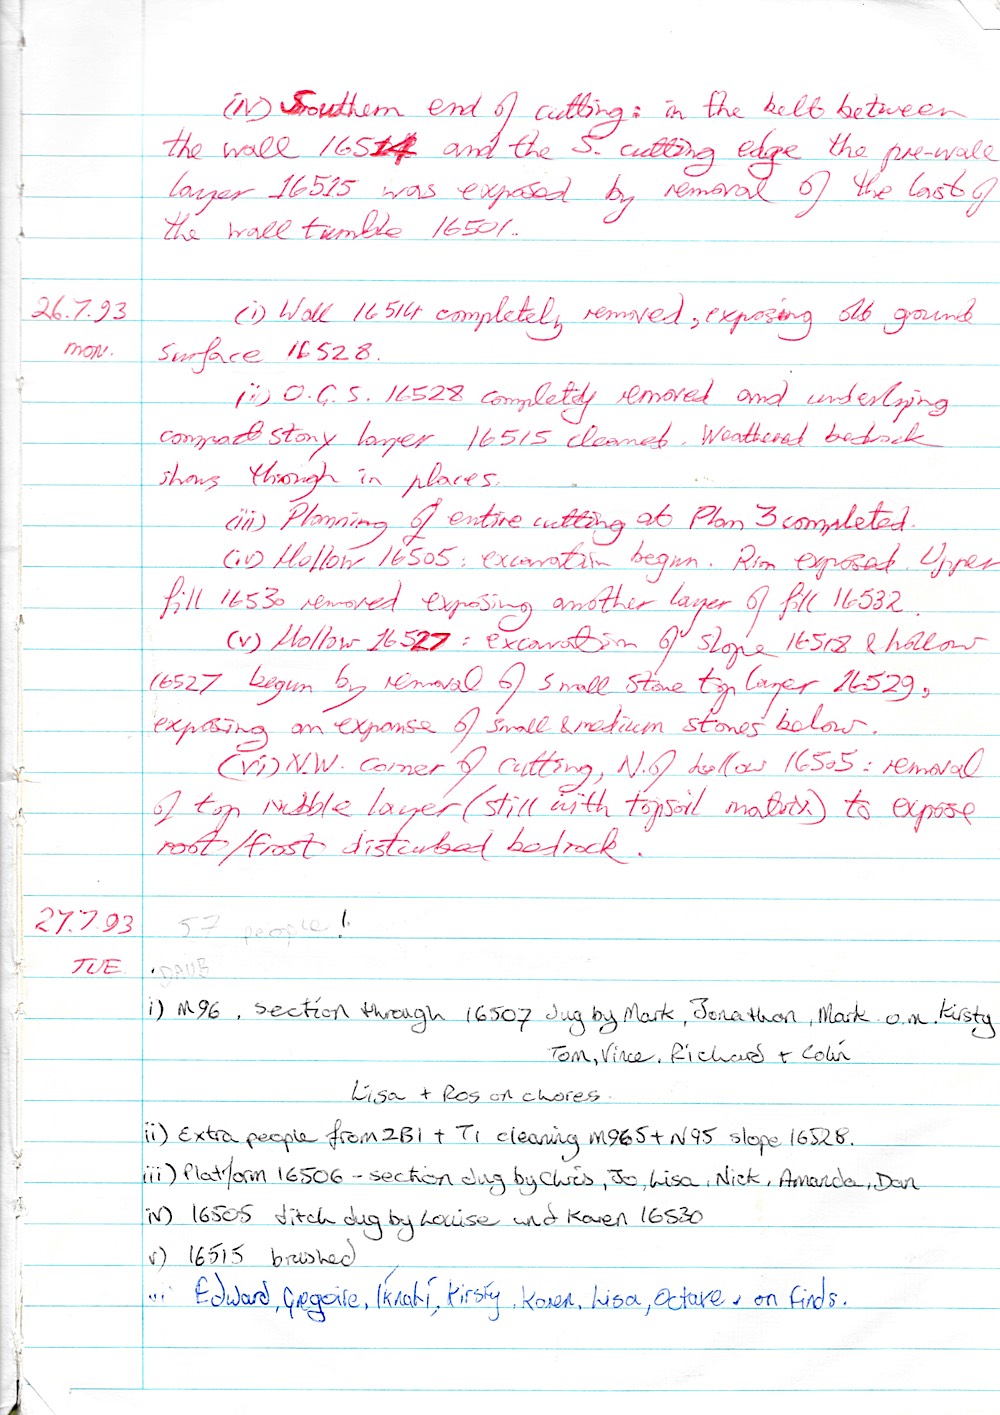 (iv) Southern end of cutting: in the belt between
the wall 16514 and the S. cutting edge the pre-wall
layer 16515 was exposed by removal of the last of
the wall tumble 16501.
26.7.93 (i) Wall 16514 completely removed, exposing old ground
MON. surface 16528.
(ii) O.G.S. 16528 completely removed and underlying
compact stony layer 16515 cleaned. Weathered bedrock
shows through in places.
(iii) Planning of entire cutting at Plan 3 completed.
(iv) Hollow 16505: excavation begun. Rim exposed. Upper
fill 16530 removed exposing another layer of fill 16532.
(v) Hollow 16527: excavation of slope 16518 & hollow
16527 begun by removal of small stone top layer 16529,
exposing an expanse of small & medium stones below.
(vi) N.W. corner of cutting, N. of hollow 16505: removal
of top rubble layer (still with topsoil matrix) to expose
root/frost disturbed bedrock.
27.7.93 57 people!
TUE. DAUB
i) M96, section through 16507 dug by Mark, Jonathon, Mark o.m. Kirsty
Tom, Vince, Richard + Colin
Lisa + Ros on chores.
ii) Extra people from 2B1 + T1 cleaning M965 + N95 slope 16528.
iii) Platform 16506 - section dug by Chris, Jo, Lisa, Nick, Amanda, Dan
iv) 16505 ditch dug by Louise and Karen 16530
v) 16515 brushed
Edward, Gregoire, Iknaki, Kirsty, Karen, Lisa, Octave, on finds.